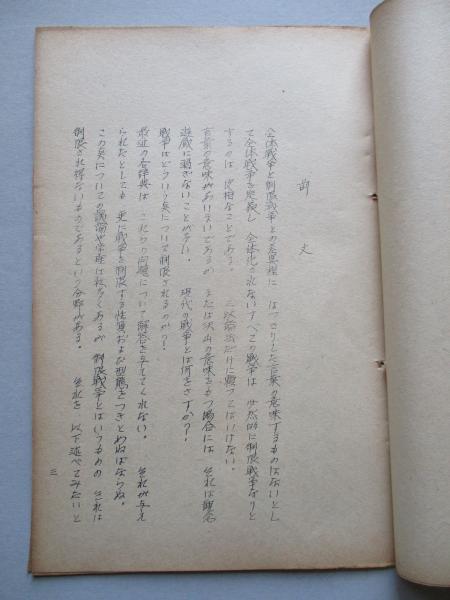 前文
全体戦争と制限戦争との差異程に はっきりした言葉の意味するものはないとし
て全体戦争を定義し 全体化されないすべての戦争は 必然的に制限戦争なりと
するのは 便利なことである。 三段論法だけに頼ってはいけない。
言葉の意味があいまいであるか または沢山の意味をもつ場合には 之れは観念
遊戯に過ぎないことが多い。 現代の戦争とは何をさすか?
戦争はどういう点について制限されるのか?
最近の各辞典は これらの問題について解答を与えてくれない。 之れが与え
られたとしても 更に戦争を制限する性質および型態をつきとめねばならぬ。
この点についての議論や学理は数多くあるが 制限戦争とはいうものの 之れは
制限され得ないものであるという分野がある。 之れを 以下述べてみたいと
三